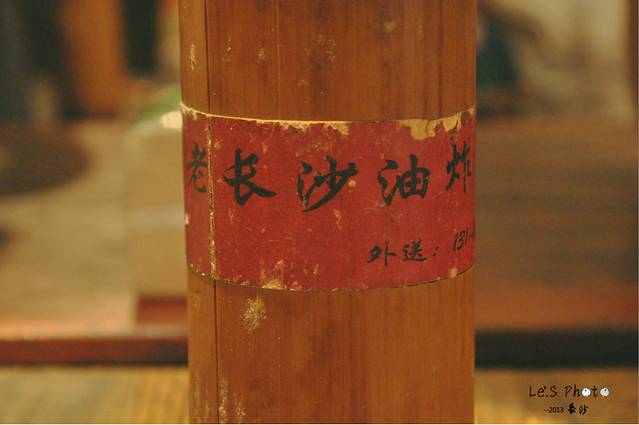 老长沙油炸
外送：131-
Le'S Photo
--2013 长沙